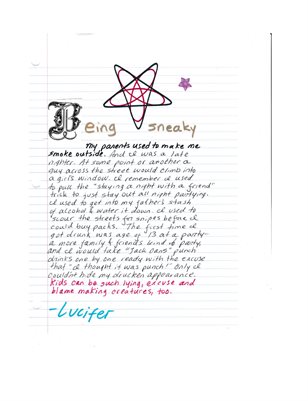 Being Sneaky
My parents used to make me
smoke outside. And I was a late
nighter. At some point or another a
guy across the street would climb into
a girls window. I remember I used
to pull the "staying a night with a friend"
trick to just stay out all night partying.
I used to get into my father's stash
of alcohol & water it down. I used to
scour the streets for snipes before I
could buy packs. "The first time I
got drunk was age of "13 at a party-
a more family & friends kind of party,
and I would take "Jack Dans" punch
drinks one by one ready with the excuse
that "I thought it was punch!" Only I
couldnt hide my drucken appearance.
Kids can be such lying, excuse and
blame making creatures, too.
-Lucifer